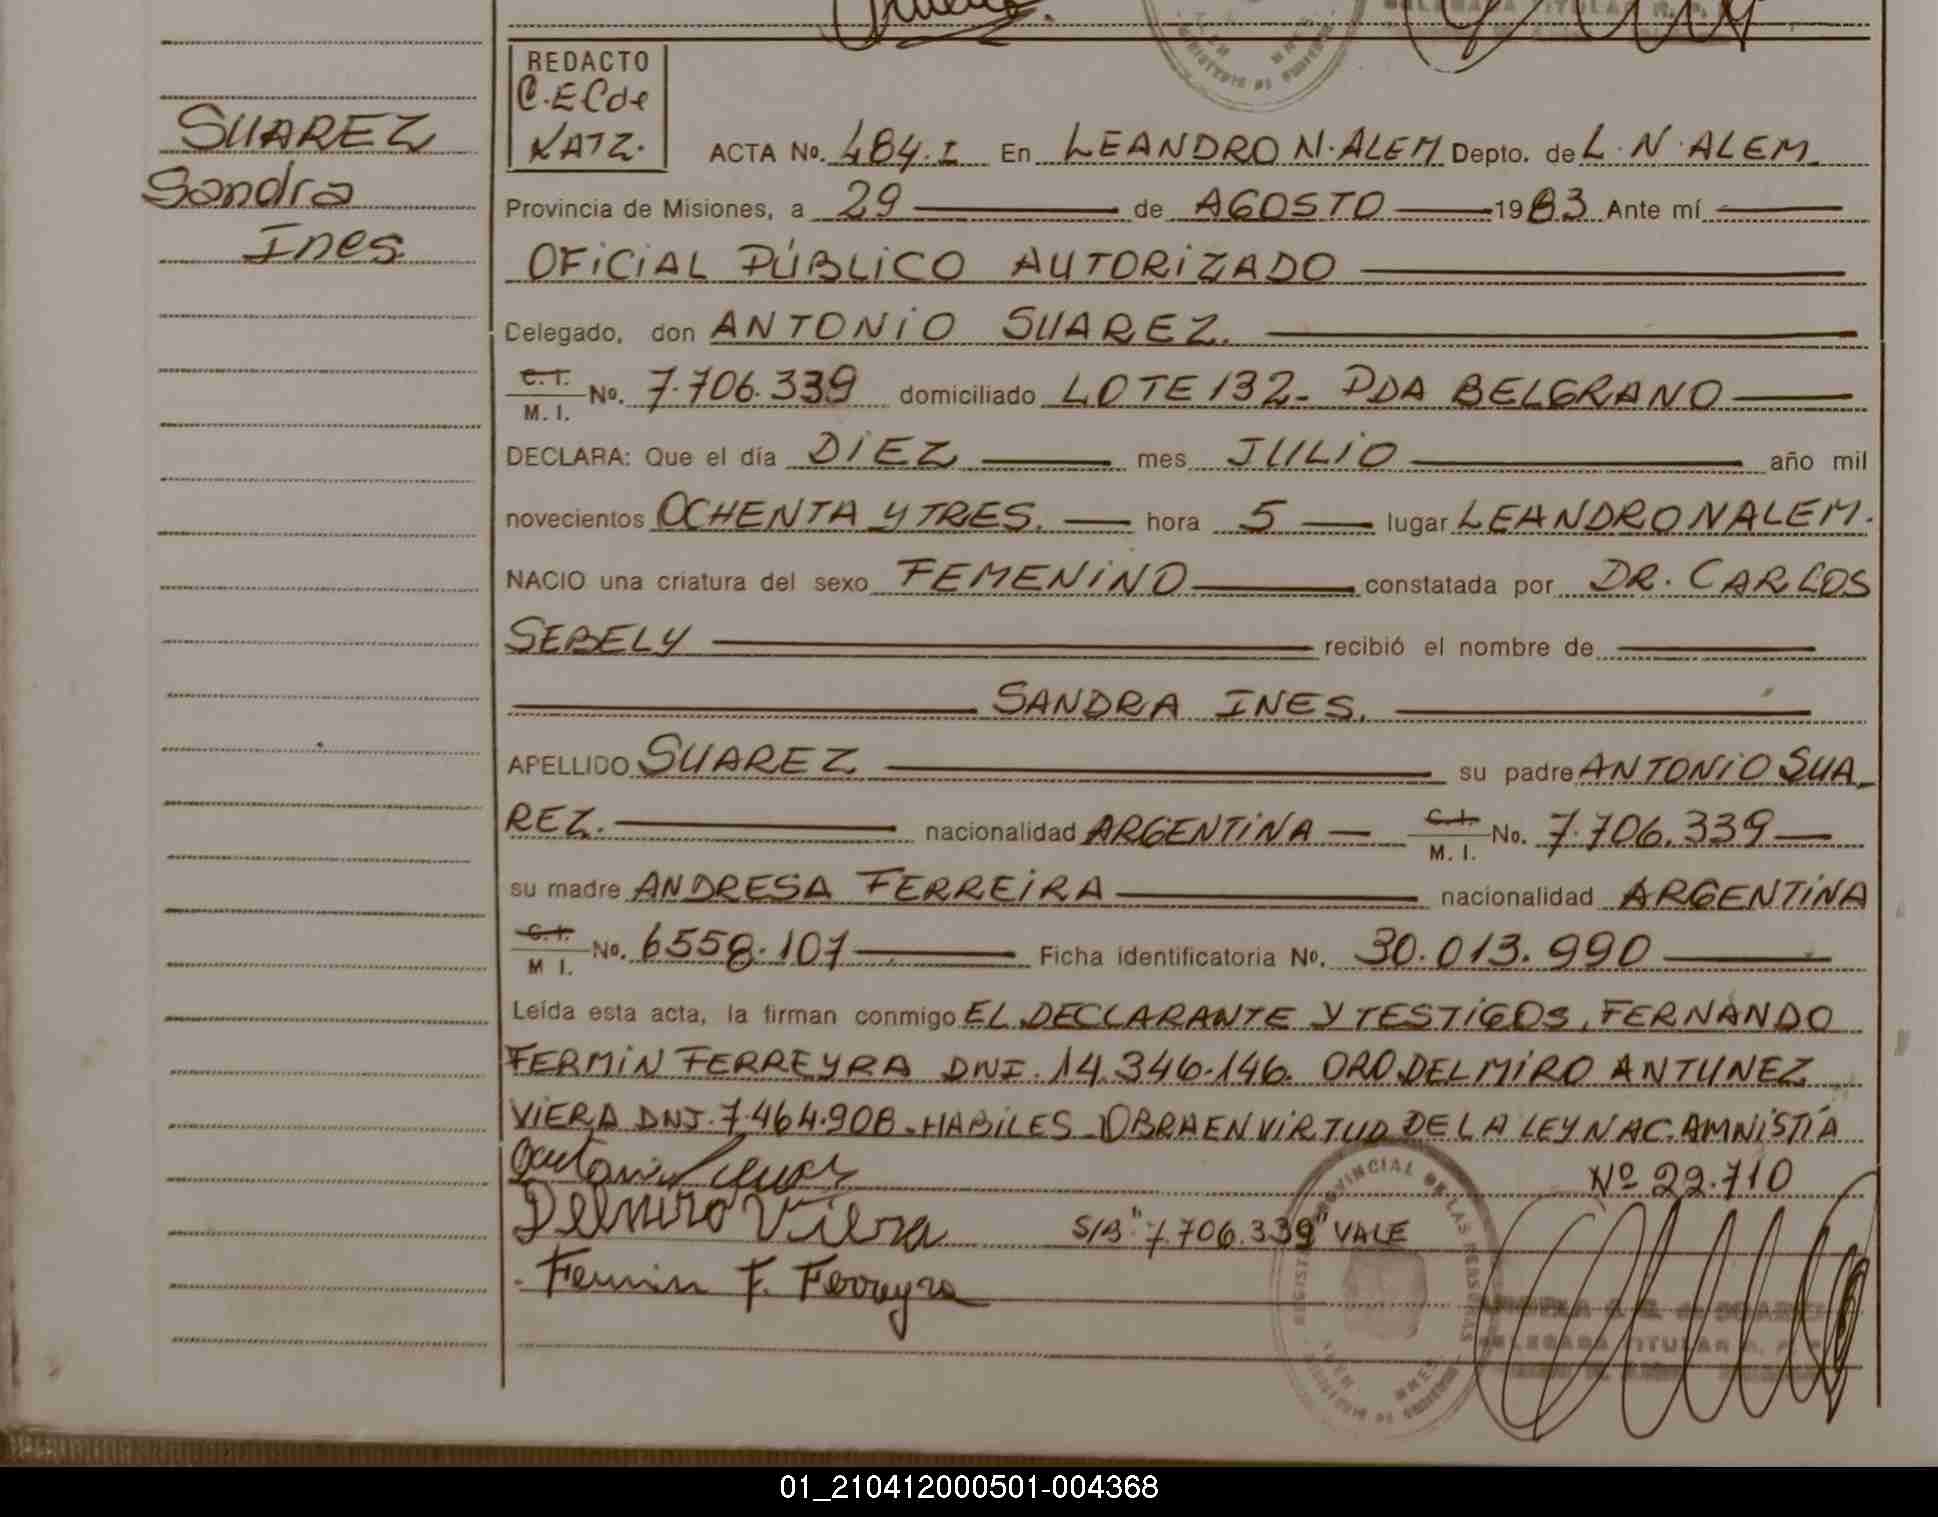 REDACTO
C. E C de
KATZ.
SUAREZ
Sandra
Ines
ACTA No. 484.I En LEANDRO N. ALEM Depto. de L. N. ALEM.
Provincia de Misiones, a 29 de AGOSTO 1983 Ante mí
OFICIAL PÚBLICO AUTORIZADO
Celegado, don ANTONIO SUAREZ.
C. I. M. I. No. 7.706.339 domiciliado LOTE 132- PDA BELGRANO
DECLARA: Que el día DIEZ mes JULIO año mil
novecientos OCHENTA Y TRES. hora 5 lugar LEANDRO N ALEM.
NACIO una criatura del sexo FEMENINO constatada por DR. CARLOS
SEBELY recibió el nombre de
SANDRA INES.
APELLIDO SUAREZ su padre ANTONIO SUA-
REZ. nacionalidad ARGENTINA C. I. M. I. No. 7.706.339
su madre ANDRESA FERREIRA nacionalidad ARGENTINA
C. I. M I. No. 6558.107 Ficha identificatoria No. 30.013.990
Leída esta acta, la firman conmigo EL DECLARANTE Y TESTIGOS, FERNANDO
FERMIN FERREYRA DNI. 14.346.146. ORO DELMIRO ANTUNEZ
VIERA DNI. 7.464.908. HABILES. OBRA EN VIRTUD DE LA LEY NAC. AMNISTÍA
Nº 22.710
Antonio Suarez
Delmiro Viera S/B "7.706.339" VALE
Fermin F. Ferreyra
PROVINCIAL DE LAS PERSONAS
DELEGADA TITULAR
01_210412000501-004368